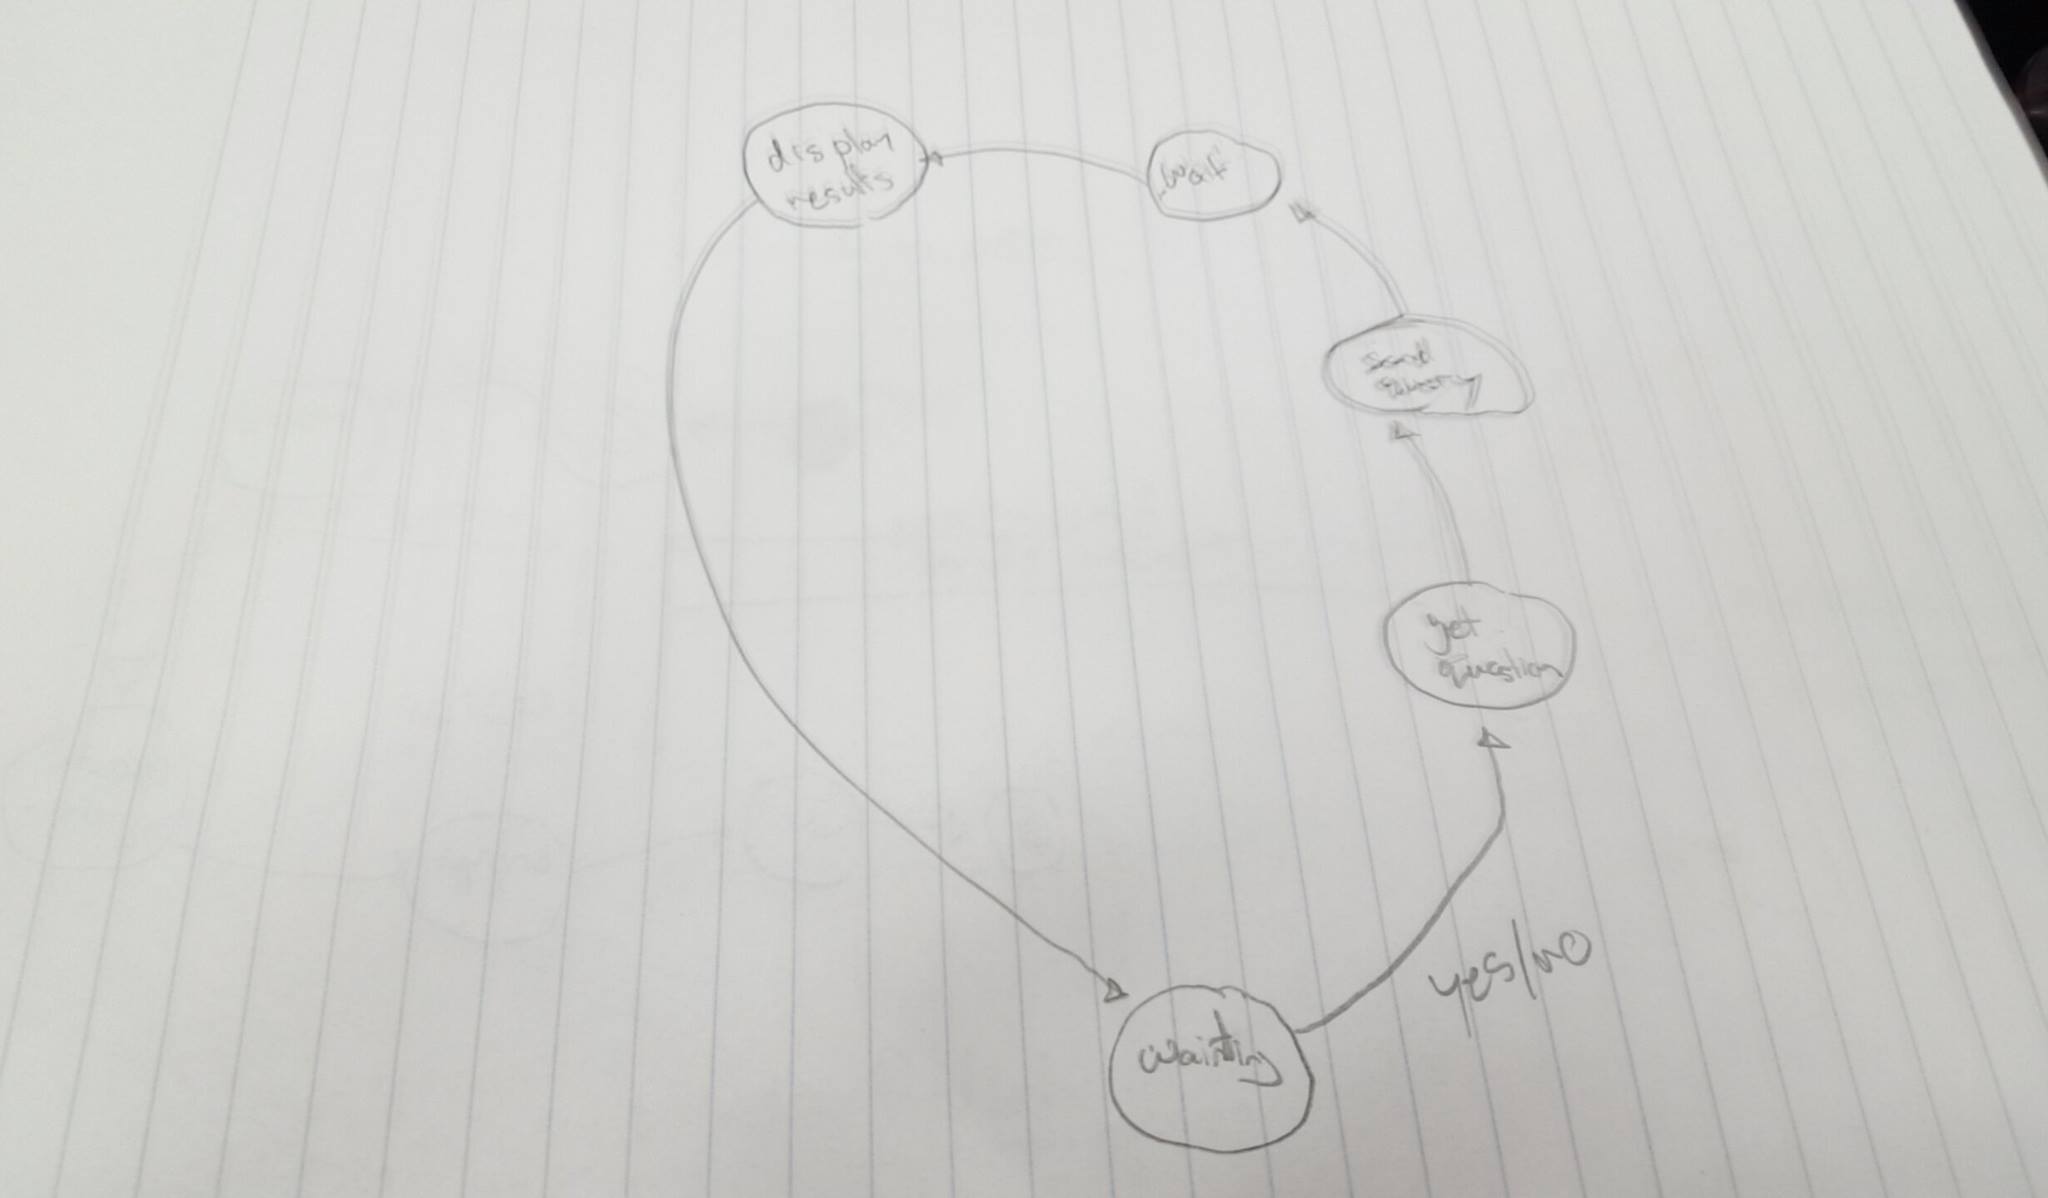 display
results
wait
send
get
question
yes/no
waiting